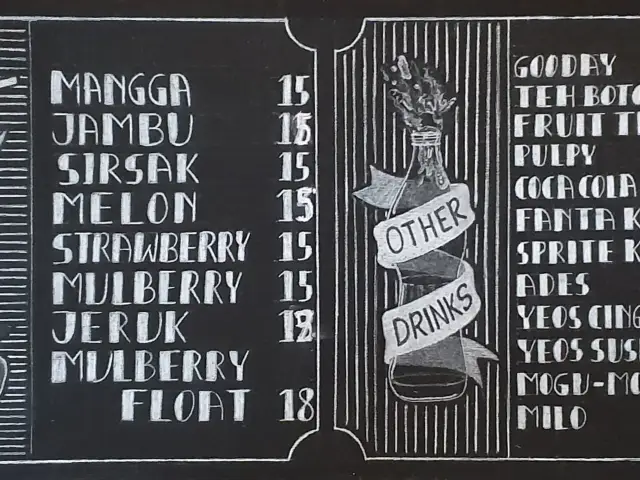 MANGGA 15
JAMBU
SIRSAK 15
MELON 15
STRAWBERRY 15
MULBERRY 15
JERUK
MULBERRY
FLOAT 18
OTHER
DRINKS
GOODAY
TEH BOTO
FRUIT T
PULPY
COCA COLA
FANTA K
SPRITE K
ADES
YEOS CING
YEOS SUS
MOGU-MO
MILO